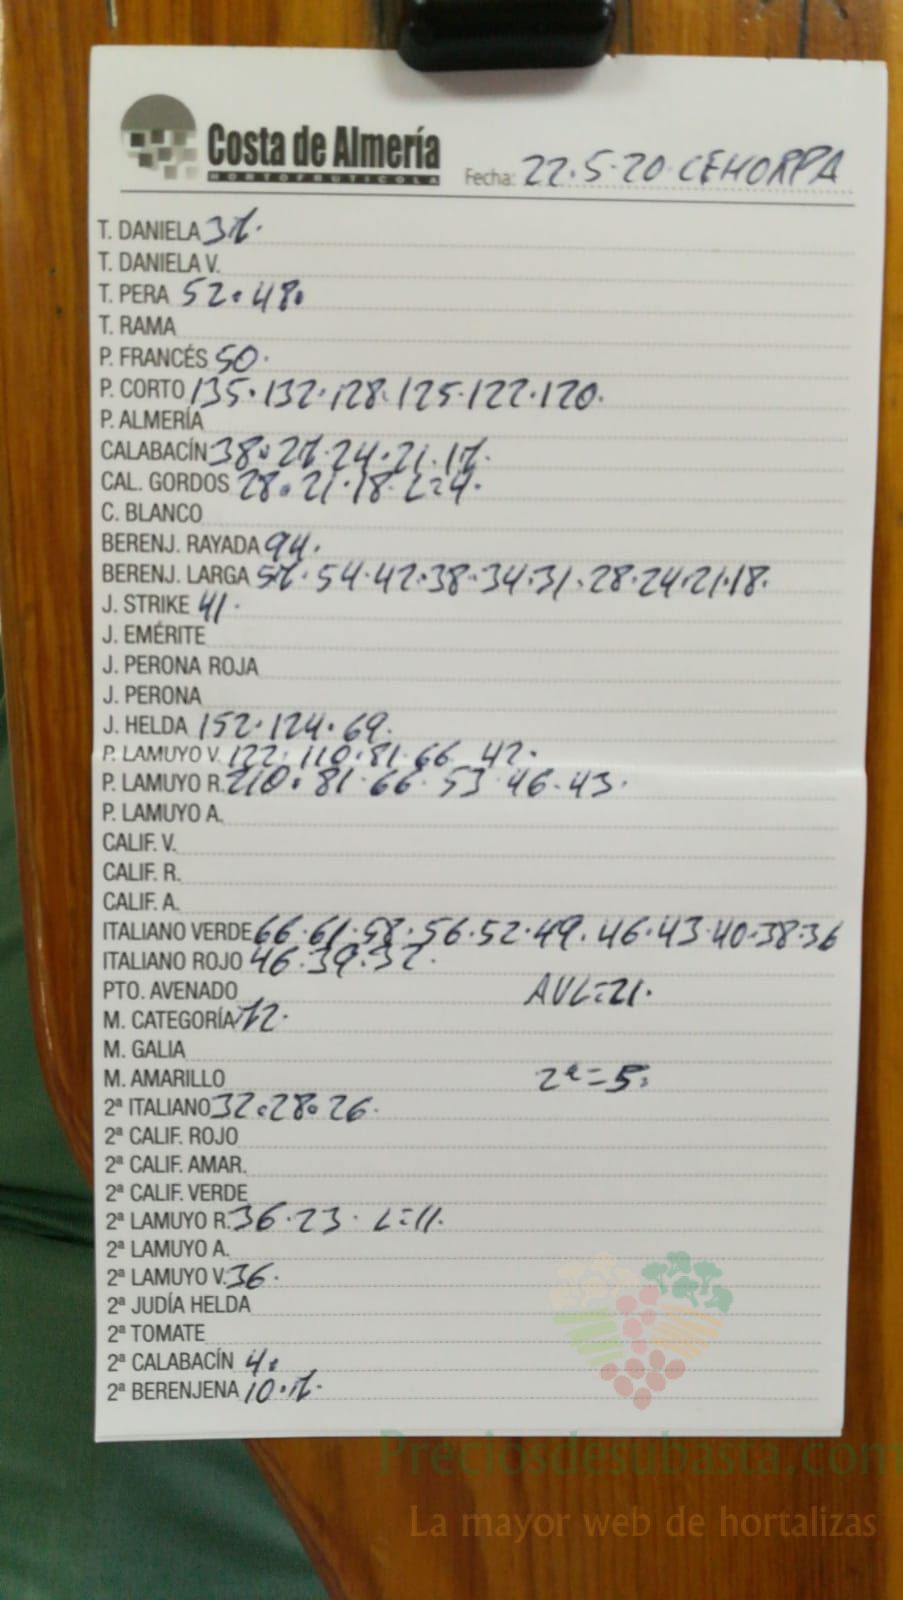 Costa de Almería
HORTOFRUTICOLA
Fecha: 22.5-20 CEHORPA
T. DANIELA 37.
T. DANIELA V.
T. PERA 52.48.
T. RAMA
P. FRANCÉS 50.
P. CORTO 135.132.128.125.122.120.
P. ALMERÍA
CALABACÍN 38.27.24.21.17.
CAL. GORDOS 28.21.18. L=4.
C. BLANCO
BERENJ. RAYADA 94.
BERENJ. LARGA 57.54.42.38.34.31.28.24.21.18.
J. STRIKE 41.
J. EMÉRITE
J. PERONA ROJA
J. PERONA
J. HELDA 152.124.69.
P. LAMUYO V. 122.110.81.66.42.
P. LAMUYO R. 210.81.66.53.46.43.
P. LAMUYO A.
CALIF. V.
CALIF. R.
CALIF. A.
ITALIANO VERDE 66.61.58.56.52.49.46.43.40.38.36
ITALIANO ROJO 46.39.32.
PTO. AVENADO AVL=21.
M. CATEGORÍA 12.
M. GALIA
M. AMARILLO 2ª=5.
2ª ITALIANO 32.28.26.
2ª CALIF. ROJO
2ª CALIF. AMAR.
2ª CALIF. VERDE
2ª LAMUYO R. 36.23. L=11.
2ª LAMUYO A.
2ª LAMUYO V. 36.
2ª JUDÍA HELDA
2ª TOMATE
2ª CALABACÍN 4.
2ª BERENJENA 10.7.
Preciosdesubasta.com
La mayor web de hortalizas